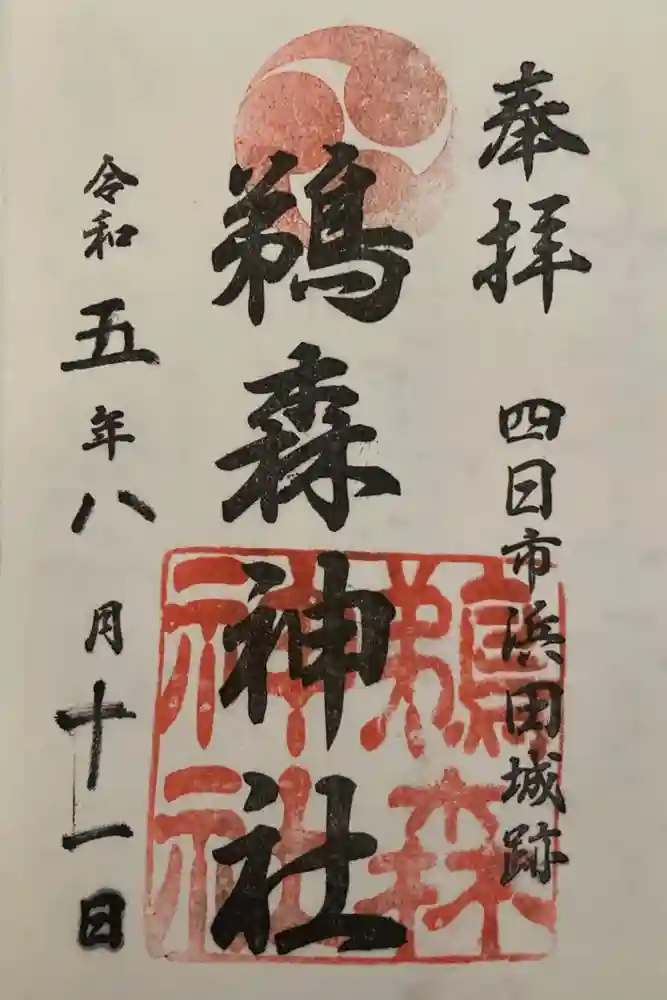 奉拝 四日市浜田城跡
鵜森神社
令和五年八月十一日
鵜森神社